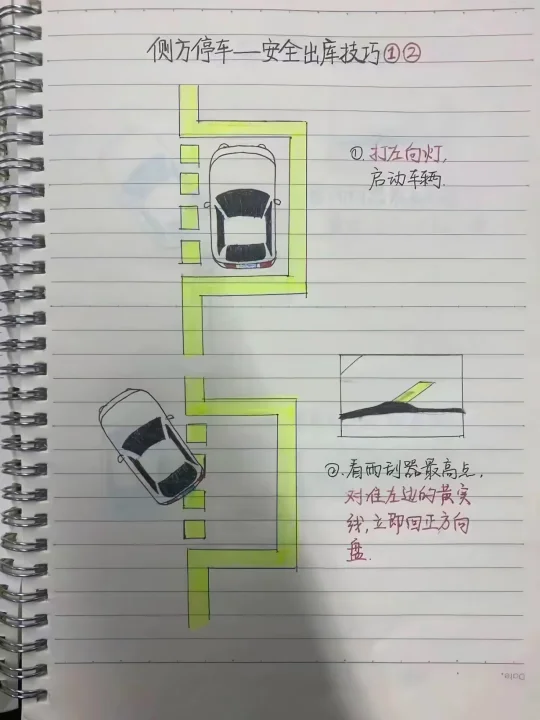 侧方停车——安全出库技巧①②
①.打左向灯,
启动车辆.
②.看雨刮器最高点,
对准左边的黄实
线,立即回正方向
盘.
Date.